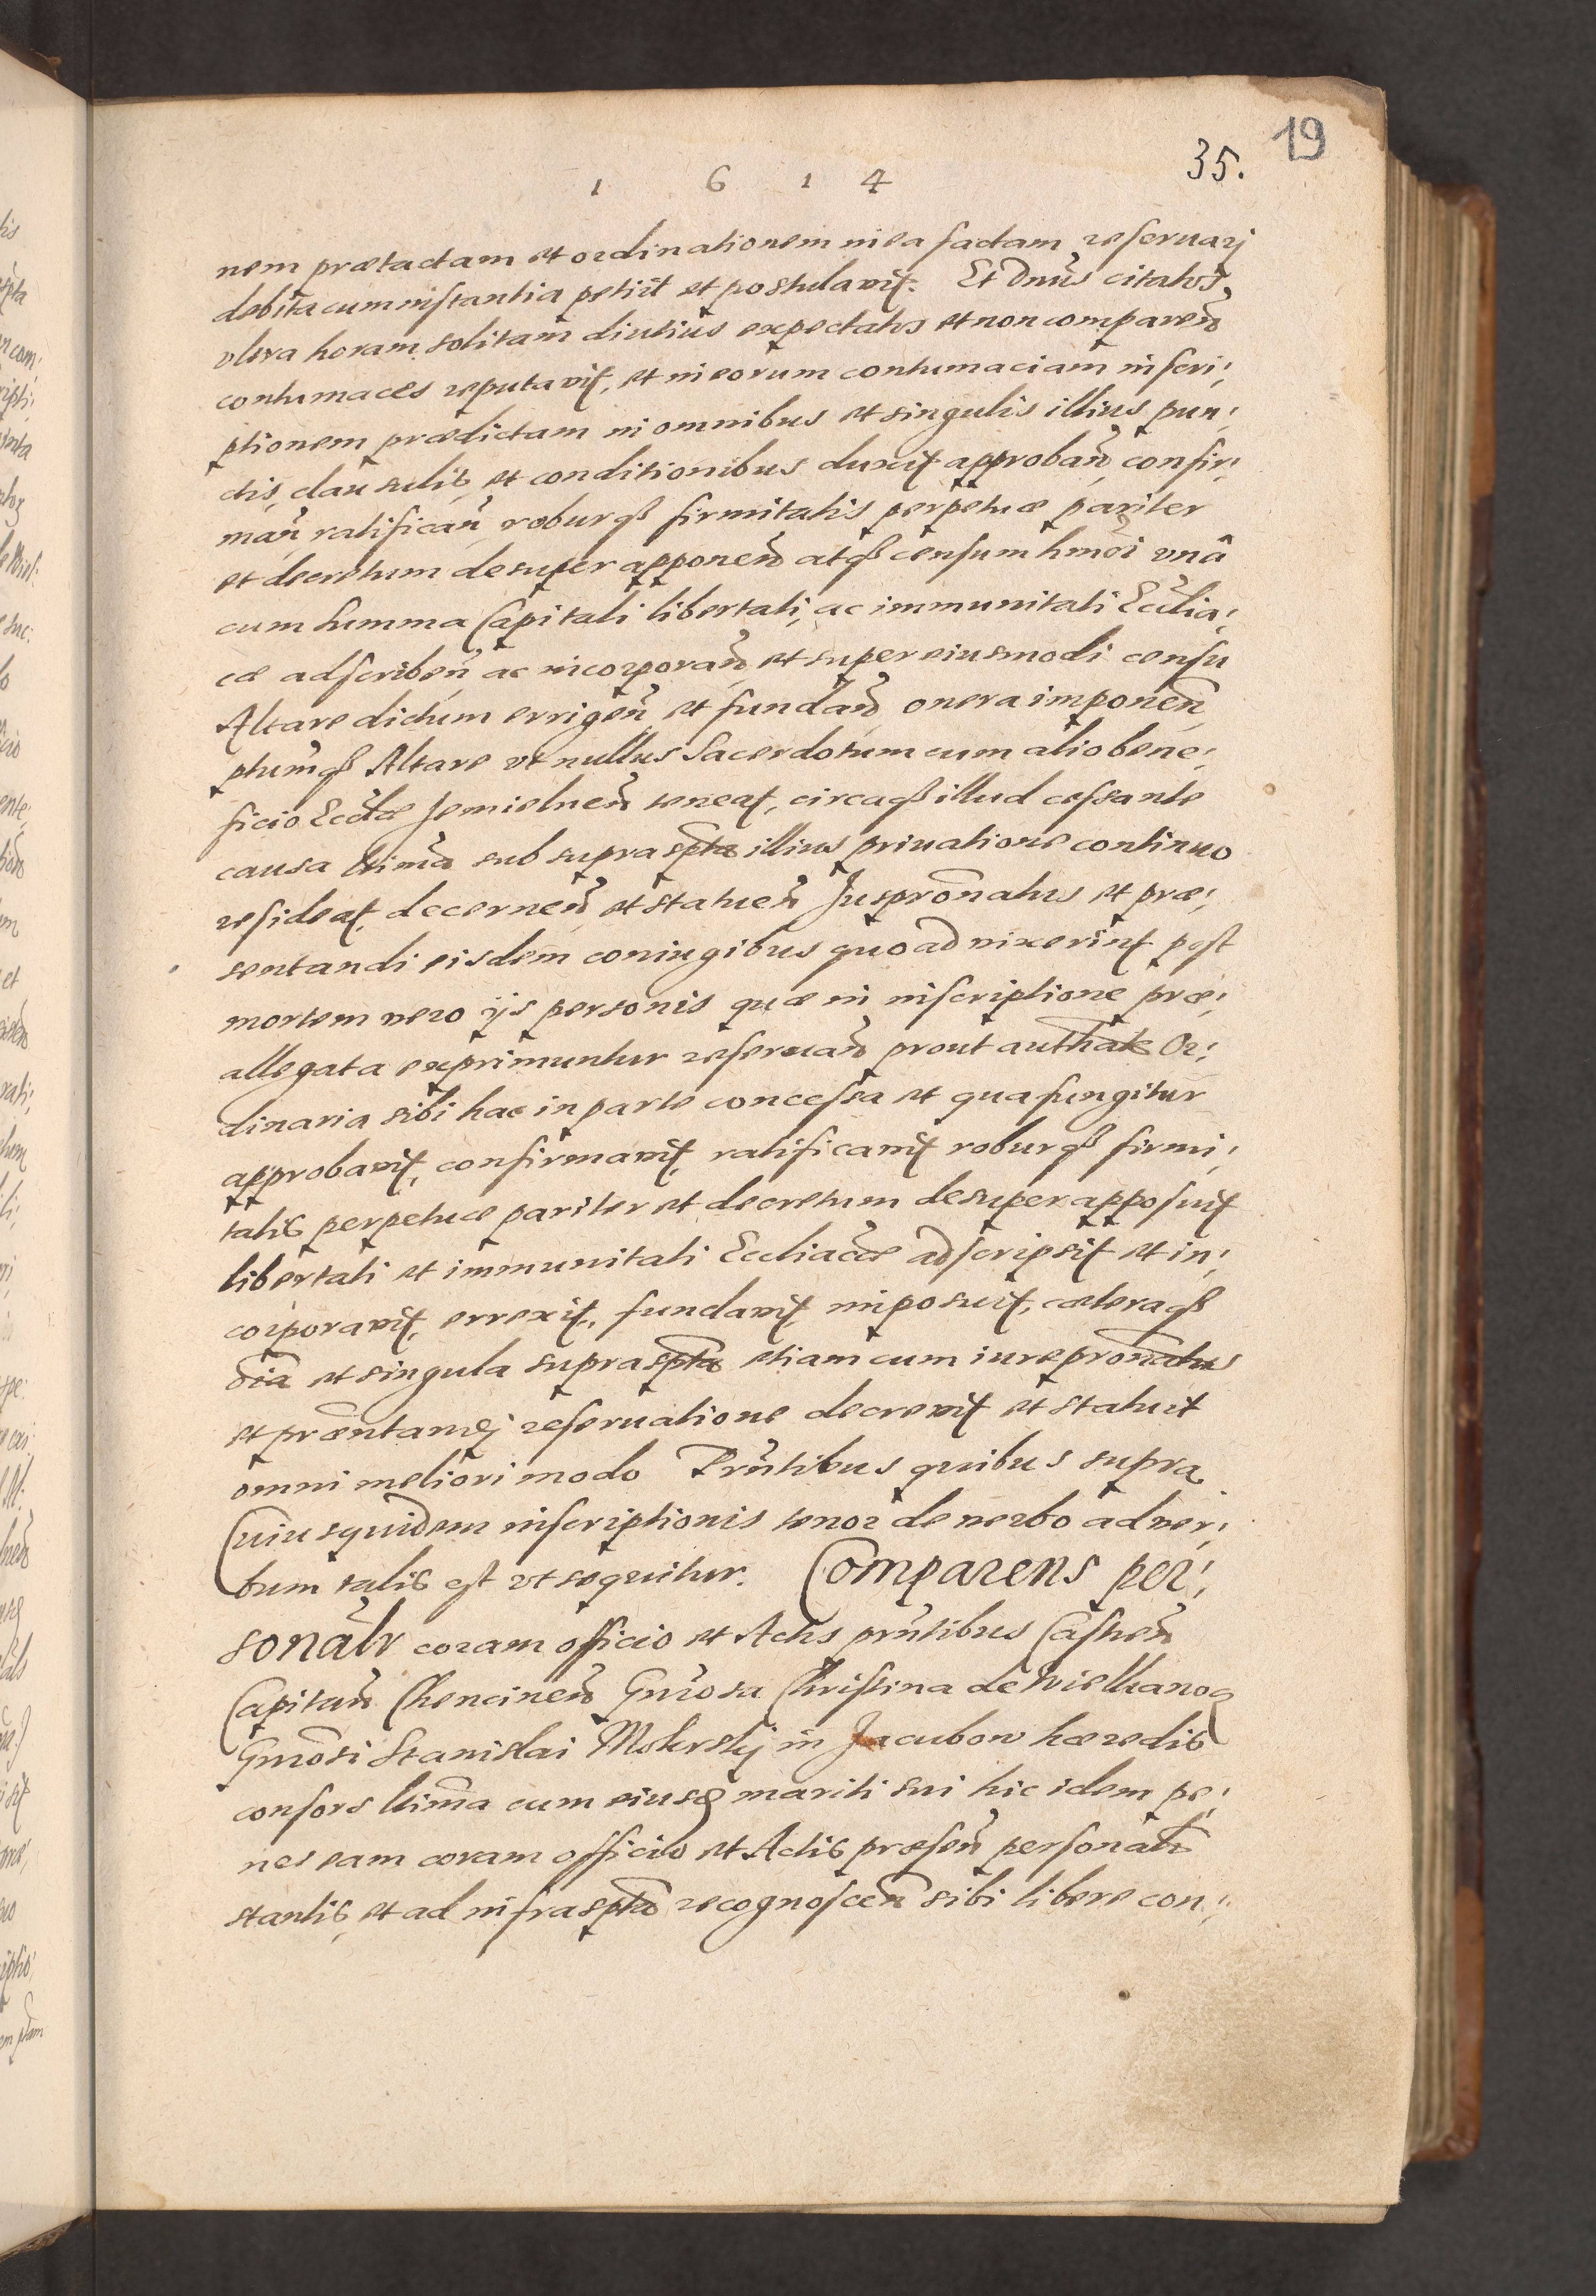 19
35.
1 6 1 4
nem prætactam et ordinationem in ea factam reseruarj
debita cum instantia petiit et postulauit. Et Dnus citatos
vltra horam solitam diutius expectatos et non comparen
contumaces reputauit, et in eorum contumaciam inscri:
ptionem prædictam in omnibus et singulis illius pun:
ctis, clausulis, et conditionibus duxit approban, confir:
man, ratifican, roburq firmitatis perpetuæ pariter
et decretum desuper apponen atq censum hmoi vnâ
cum summa Capitali libertati, ac immunitati Ecclia:
cæ adscriben, ac incorporan, et super eiusmodi censu
Altare dictum errigen, et fundan onera imponen,
ptumq Altare vt nullus Sacerdotum cum alio bene:
ficio Ecclæ Jemielnen teneat, circaq illud cessante
causa ltima sub suprascpta illius priuatione continuo
resideat, decernen, et statuen Juspronatus et præ:
sentandi eisdem coniugibus quoad vixerint post
mortem vero ijs personis quæ in inscriptione præ:
allegata exprimuntur reseruan prout authate Or:
dinaria sibi hac in parte concessa et qua fungitur
approbauit, confirmauit, ratificauit roburq firmi:
tatis perpetuæ pariter et decretum desuper apposuit
libertati et immunitati Eccliacæ adscripsit et in:
corporauit, errexit, fundauit, imposuit, cæteraq
oia et singula suprascpta etiam cum iurepronatus
et præntandj reseruatione decreuit et statuit
omni meliori modo Prntibus quibus supra
Cuiusquidem inscriptionis tenor de verbo ad ver:
bum talis est vt sequitur. Comparens per:
sonalr coram officio et Actis prntibus Castren
Capitan Chencinen Gnrosa Christina de Wielhanog
Gnrosi Stanislai Mokrskj in Jacubow hæredis
consors ltima cum eiusd mariti sui hic idem pe:
nes eam coram officio et Actis præsen personalr
stantis, et ad infrascpta recognoscen sibi libere con: